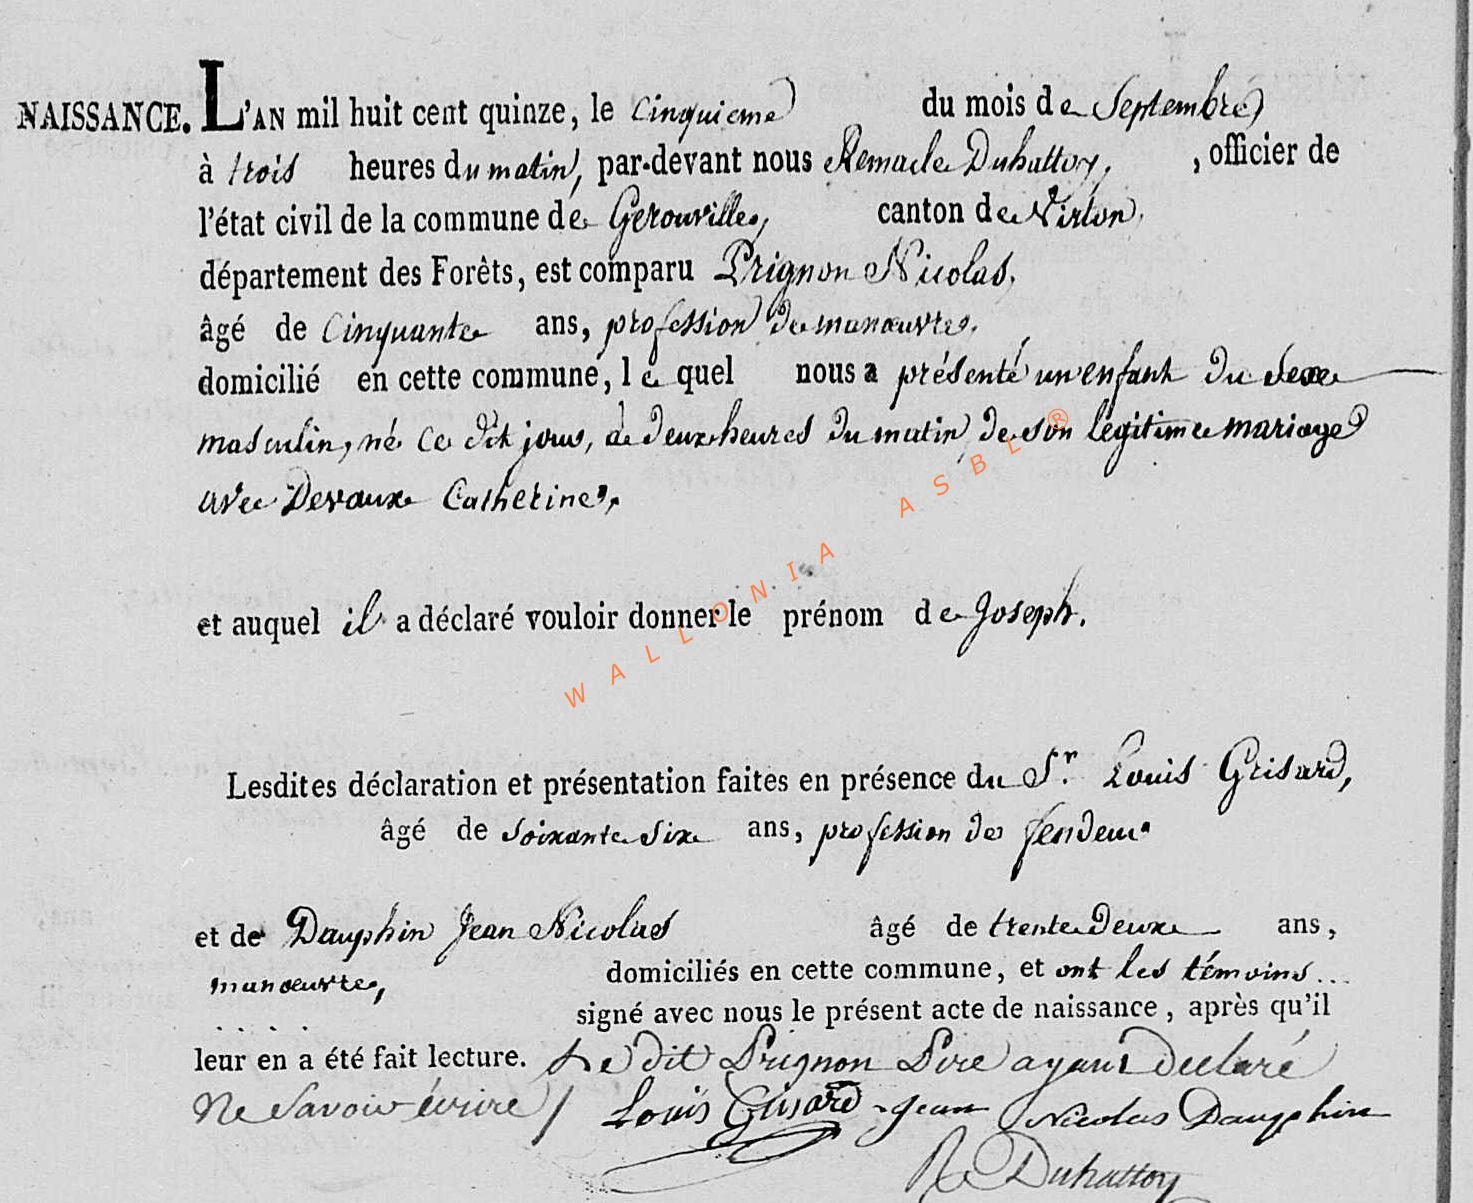 NAISSANCE. L'AN mil huit cent quinze, le cinquieme du mois de Septembre
à trois heures du matin, par-devant nous Remacle Duhattoy, , officier de
l'état civil de la commune de Gerouville, canton de Virton,
département des Forêts, est comparu Prignon Nicolas,
âgé de Cinquante ans, profession de manœuvre,
domicilié en cette commune, le quel nous a présenté un enfant du sexe
masculin, né ce dit jour, à deux heures du matin de son légitime mariage
avec Devaux Catherine,
et auquel il a déclaré vouloir donner le prénom de Joseph.
WALLONIA ASBL ®
Lesdites déclaration et présentation faites en présence du Sr. Louis Grisard,
âgé de soixante six ans, profession de fendeur
et de Dauphin Jean Nicolas âgé de trente deux ans,
manœuvre, domiciliés en cette commune, et ont les témoins ...
. . . . . signé avec nous le présent acte de naissance, après qu'il
leur en a été fait lecture. Le dit Prignon Pire ayant declaré
Ne Savoir écrire / Louis Grisard Jean Nicolas Dauphin
Re Duhattoy